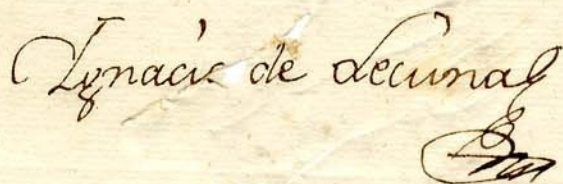 Ignacio de Lecuna